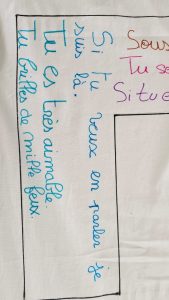 Sous
Tu s
Si tu e
Si tu veux en parler je
suis là.
Tu es très aimable
Tu brilles de mille feux.